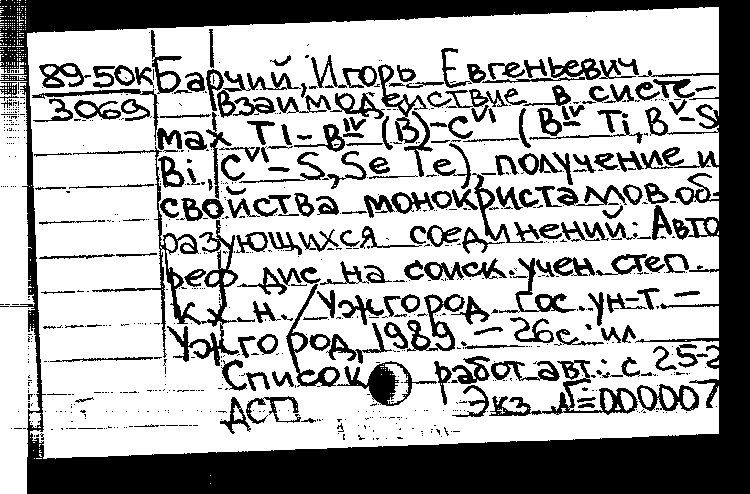 89-50К Барчий, Игорь Евгеньевич.
3069 Взаимодействие в систе-
мах Tl-B^IV (B^V)-C^VI (B^IV-Ti, B^V-Sb
Bi, C^VI-S, Se Te), получение и
свойства монокристаллов об-
разующихся соединений: Авто
реф дис. на соиск. учен. степ.
к. х. н. / Ужгород. гос. ун-т. —
Ужгород, 1989. — 26 с.: ил
Список работ авт.: с 25-2
ДСП. Экз №=000007